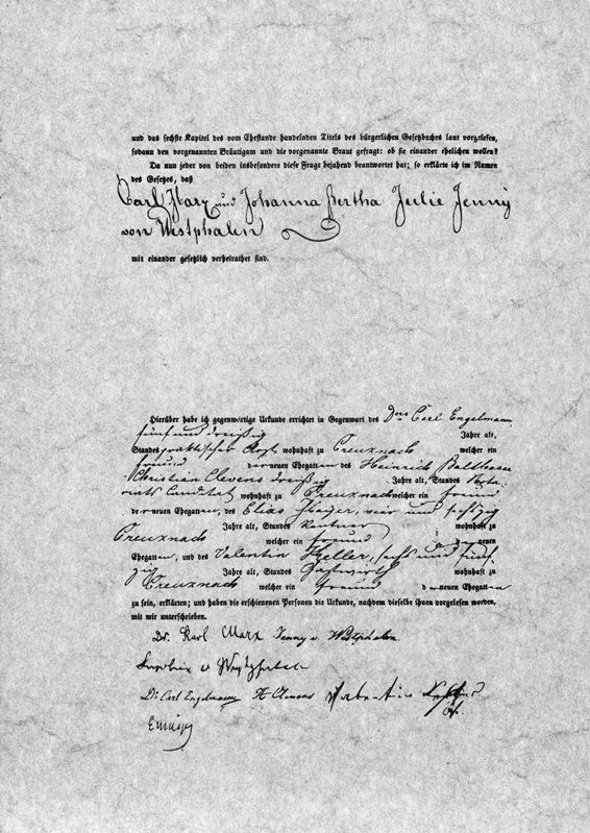 und das sechste Kapitel des vom Ehestande handelnden Titels des bürgerlichen Gesetzbuches laut vorgelesen,
sodann den vorgenannten Bräutigam und die vorgenannte Braut gefragt: ob sie einander ehelichen wollen?
Da nun jeder von beiden insbesondere diese Frage bejahend beantwortet hat; so erklärte ich im Namen
des Gesetzes, daß
Carl Marx und Johanna Bertha Julie Jenny
von Westphalen
mit einander gesetzlich verheirathet sind.
Hierüber habe ich gegenwärtige Urkunde errichtet in Gegenwart des Drs Carl Engelmann,
fünf und dreißig Jahre alt,
Standes praktischer Arzt wohnhaft zu Creuznach welcher ein
Freund der neuen Ehegatten des Heinrich Balthasar
Christian Clevens dreißig Jahre alt, Standes Nota-
riats Candidat wohnhaft zu Creuznach welcher ein Freund
der neuen Ehegatten, des Elias vier und sechzig
Jahre alt, Standes Rentner wohnhaft zu
Creuznach welcher ein Freund der neuen
Ehegatten, und des Valentin Keller, sechs und fünf-
zig Jahre alt, Standes Gastwirth wohnhaft zu
Creuznach welcher ein Freund der neuen Ehegatten
zu sein, erklärten; und haben die erschienenen Personen die Urkunde, nachdem dieselbe ihnen vorgelesen worden,
mit mir unterschrieben.
Dr. Karl Marx Jenny v. Westphalen
v Westphalen
Dr. Carl Engelmann H Clevens